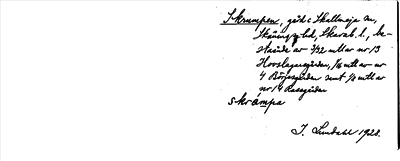 Skrumpen, gård i Skallmeja sn,
Skånings hd, Skarab. l., be-
stående av 7/32 mtl av nr 13
Hovslagaregården, 1/16 mtl av nr
4 Börjesgården samt 1/8 mtl av
nr 14 Lassgården
skrámpa
I. Lundahl 1928.